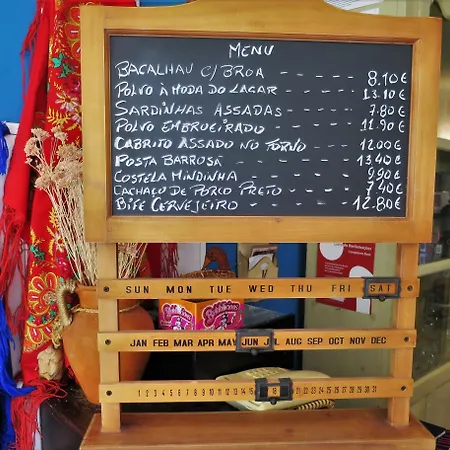 MENU
BACALHAU C/ BROA - - - - - 8.10€
POLVO À MODA DO LAGAR - - - - 13.10€
SARDINHAS ASSADAS - - - - 7.80€
POLVO EMBROEIRADO - - - - 11.90€
CABRITO ASSADO NO FORNO - - - 12.00€
POSTA BARROSÃ - - - - - 13.40€
COSTELA MINDINHA - - - - - 9.90€
CACHAÇO DE PORCO PRETO - - - - 7.40€
BIFE CERVEJEIRO - - - - - 12.80€
SUN MON TUE WED THU FRI SAT
JAN FEB MAR APR MAY JUN JUL AUG SEP OCT NOV DEC